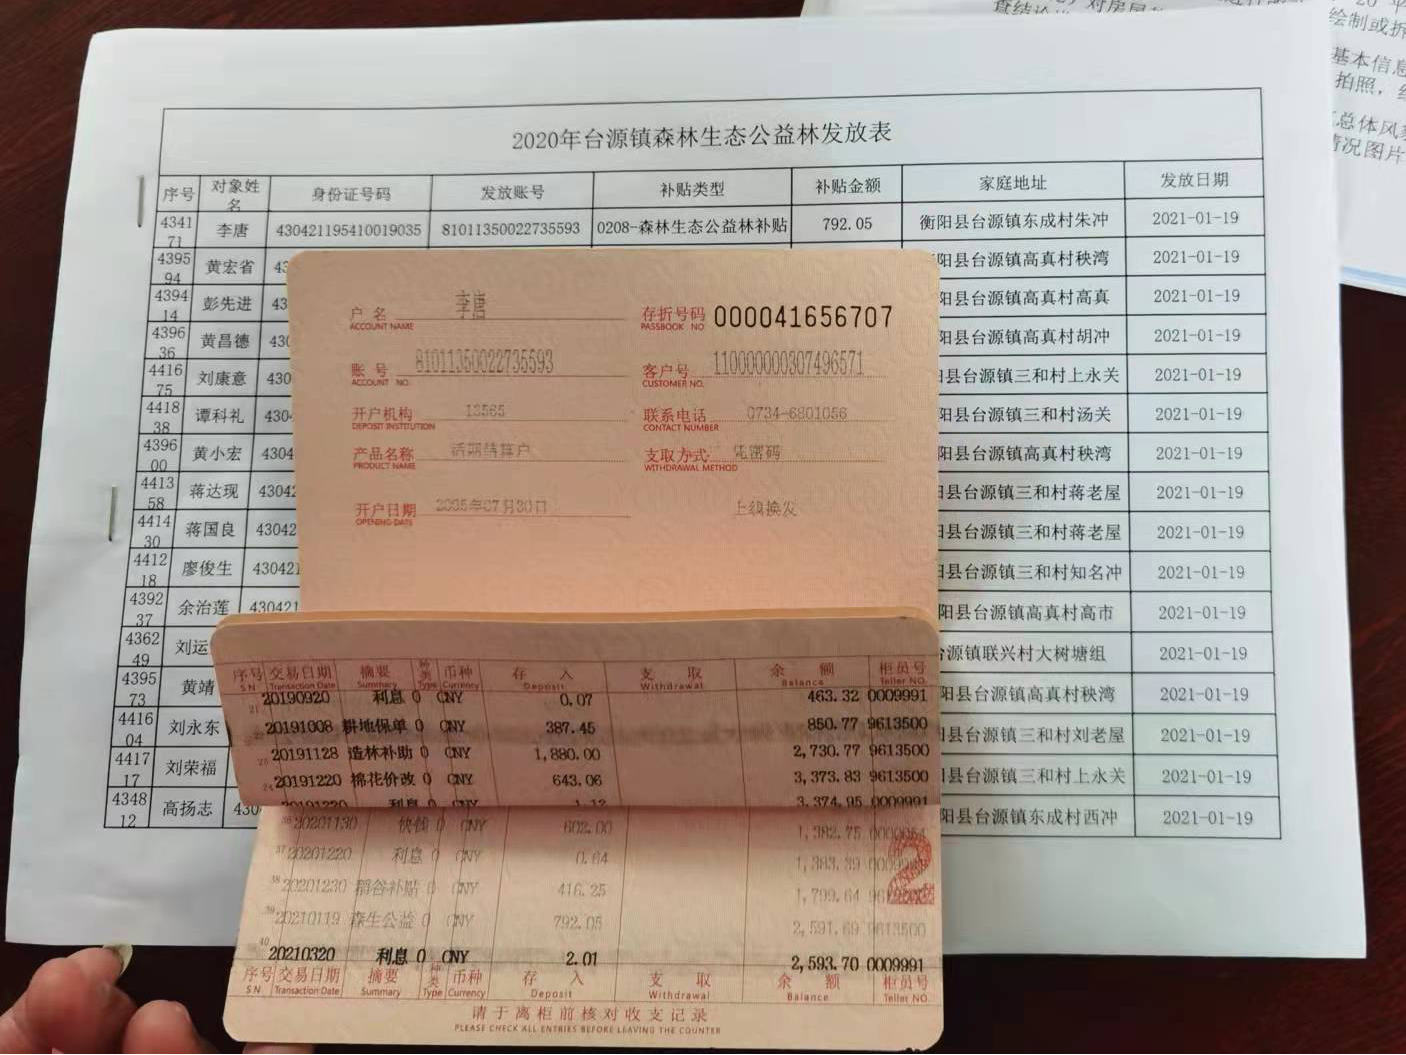 绘制或拆
基本信息
拍照，
总体风
情况图片
2020年台源镇森林生态公益林发放表
序号 对象姓名 身份证号码 发放账号 补贴类型 补贴金额 家庭地址 发放日期
434171 李唐 430421195410019035 81011350022735593 0208-森林生态公益林补贴 792.05 衡阳县台源镇东成村朱冲 2021-01-19
439594 黄宏省 43 阳县台源镇高真村秧湾 2021-01-19
439414 彭先进 43 阳县台源镇高真村高真 2021-01-19
439636 黄昌德 430 阳县台源镇高真村胡冲 2021-01-19
441675 刘康意 430 阳县台源镇三和村上永关 2021-01-19
441838 谭科礼 430 阳县台源镇三和村汤关 2021-01-19
439600 黄小宏 4304 阳县台源镇高真村秧湾 2021-01-19
441358 蒋达现 43042 县台源镇三和村蒋老屋 2021-01-19
441430 蒋国良 43042 县台源镇三和村蒋老屋 2021-01-19
441218 廖俊生 430421 县台源镇三和村知名冲 2021-01-19
439237 余治莲 430421 县台源镇高真村高市 2021-01-19
436249 刘运 源镇联兴村大树塘组 2021-01-19
439573 黄靖 阳县台源镇高真村秧湾 2021-01-19
441604 刘永东 县台源镇三和村刘老屋 2021-01-19
441717 刘荣福 县台源镇三和村上永关 2021-01-19
434812 高扬志 430 县台源镇东成村西冲 2021-01-19
户名 李唐 存折号码 000041656707
ACCOUNT NAME PASSBOOK NO
账号 81011350022735593 客户号 110000000307496571
ACCOUNT NO. CUSTOMER NO.
开户机构 13565 联系电话 0734-6801056
DEPOSIT INSTITUTION CONTACT NUMBER
产品名称 活期结算户 支取方式 凭密码
PRODUCT NAME WITHDRAWAL METHOD
开户日期 2005年07月30日 上线换发
OPENING DATE
序号 交易日期 摘要 种类 币种 存入 支取 余额 柜员号
S N Transaction Date Summary Type Currency Deposit Withdrawal Balance Teller NO.
21 20190920 利息 0 CNY 0.07 463.32 0009991
20191008 耕地保单 0 CNY 387.45 850.77 9613500
20191128 造林补助 0 CNY 1,880.00 2,730.77 9613500
24 20191220 棉花价改 0 CNY 643.06 3,373.83 9613500
20191220 利息 0 CNY 1.12 3,374.95 0009991
36 20201130 快钱 0 CNY 602.00 1,382.75
37 20201220 利息 0 CNY 0.64 1,383.39
38 20201230 稻谷补贴 0 CNY 416.25 1,799.64
39 20210119 森生公益 0 CNY 792.05 2,591.69 9613500
40 20210320 利息 0 CNY 2.01 2,593.70 0009991
序号 交易日期 摘要 种类 币种 存入 支取 余额 柜员号
S N Transaction Date Summary Type Currency Deposit Withdrawal Balance Teller NO.
请于离柜前核对收支记录
PLEASE CHECK ALL ENTRIES BEFORE LEAVING THE COUNTER